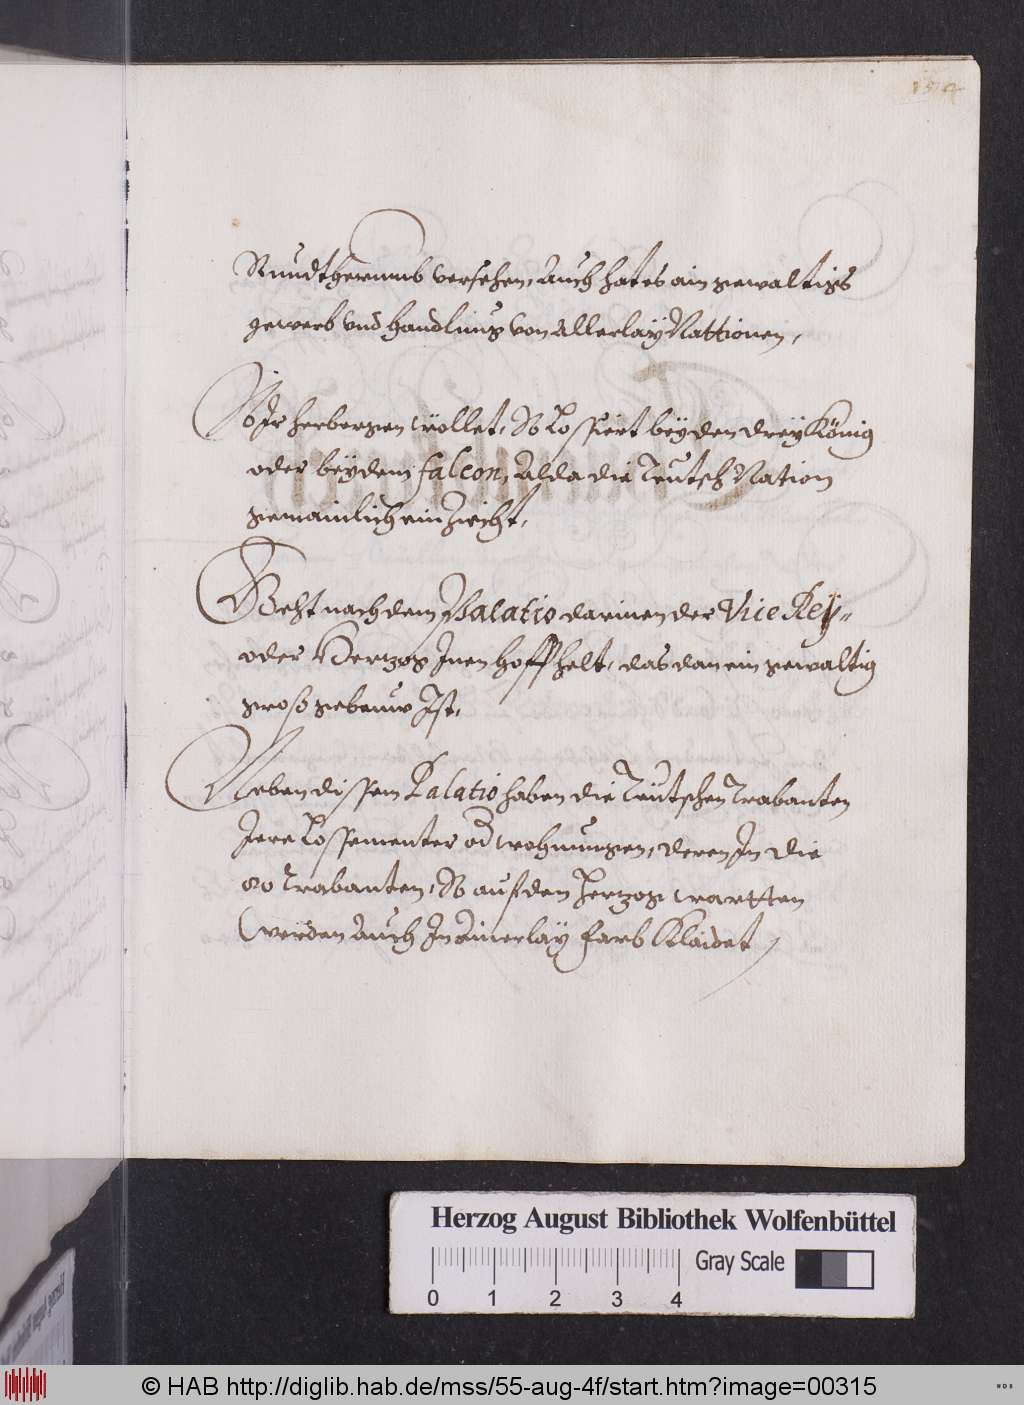 Rundtherumb versehen, Auch hat es ain gewaltigs
gewerb vnd handlung von Allerlay Nattionen,
Wo Ir herbergen wöllet, So Lossiert bey den drey König
oder bey dem falcon, Alda die Teutsch Nation
gemainlich ein Ziecht,
Geht nach dem Palatio darinen der Vice Rey
oder Hertzog Inen hoff helt, das dan ein gewaltig
groß gebeuw Ist,
Neben dissem Palatio haben die Teutschen Trabanten
Jere Lossementer od wohnungen, deren In die
80 Trabanten, So auf den Hertzog wartten
werden Auch In Ainerlay farb Klaidet
Herzog August Bibliothek Wolfenbüttel
Gray Scale
0 1 2 3 4
© HAB http://diglib.hab.de/mss/55-aug-4f/start.htm?image=00315